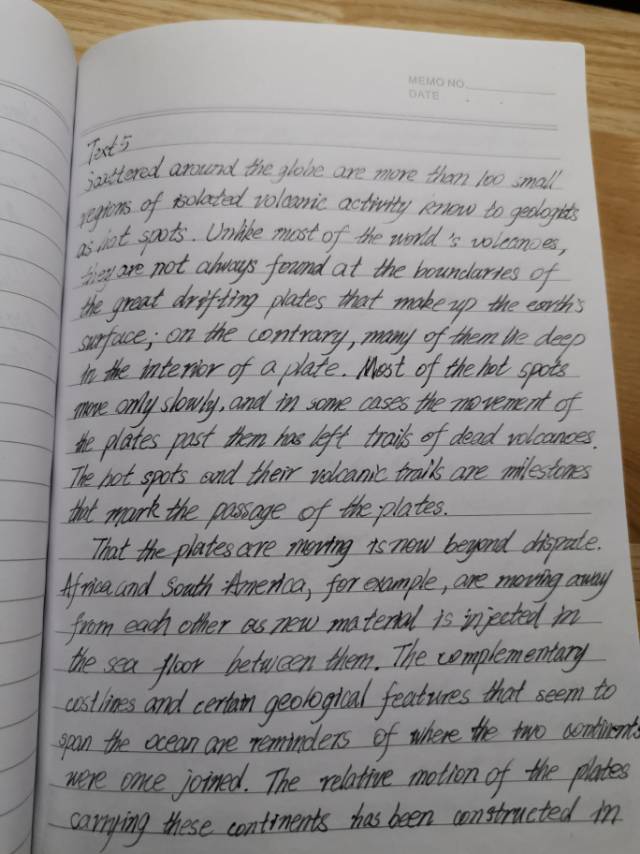 MEMO NO.
DATE
Text 5
Scattered around the globe are more than 100 small
regions of isolated volcanic activity know to geologists
as hot spots. Unlike most of the world's volcanoes,
they are not always found at the boundaries of
the great drifting plates that make up the earth's
surface; on the contrary, many of them lie deep
in the interior of a plate. Most of the hot spots
move only slowly, and in some cases the movement of
the plates past them has left trails of dead volcanoes.
The hot spots and their volcanic trails are milestones
that mark the passage of the plates.
That the plates are moving is now beyond dispute.
Africa and South America, for example, are moving away
from each other as new material is injected in
the sea floor between them. The complementary
costlines and certain geological features that seem to
span the ocean are reminders of where the two continents
were once joined. The relative motion of the plates
carrying these continents has been constructed in